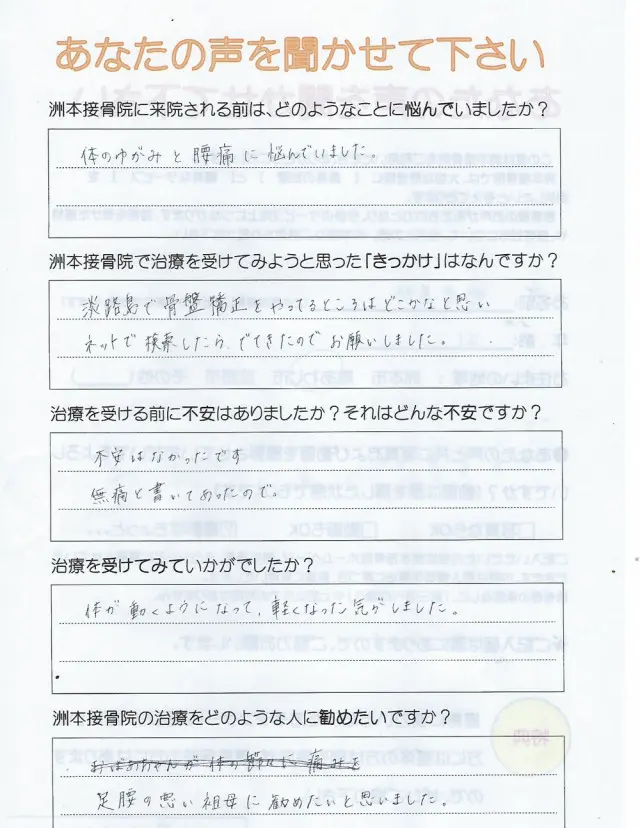 あなたの声を聞かせて下さい
洲本接骨院に来院される前は、どのようなことに悩んでいましたか？
体のゆがみと腰痛に悩んでいました。
洲本接骨院で治療を受けてみようと思った「きっかけ」はなんですか？
淡路島で骨盤矯正をやってるところはどこかなと思い
ネットで検索したら、でてきたのでお願いしました。
治療を受ける前に不安はありましたか？それはどんな不安ですか？
不安はなかったです
無痛と書いてあったので。
治療を受けてみていかがでしたか？
体が動くようになって、軽くなった気がしました。
洲本接骨院の治療をどのような人に勧めたいですか？
おばあちゃんが体の節々に痛みを
足腰の悪い祖母に勧めたいと思いました。